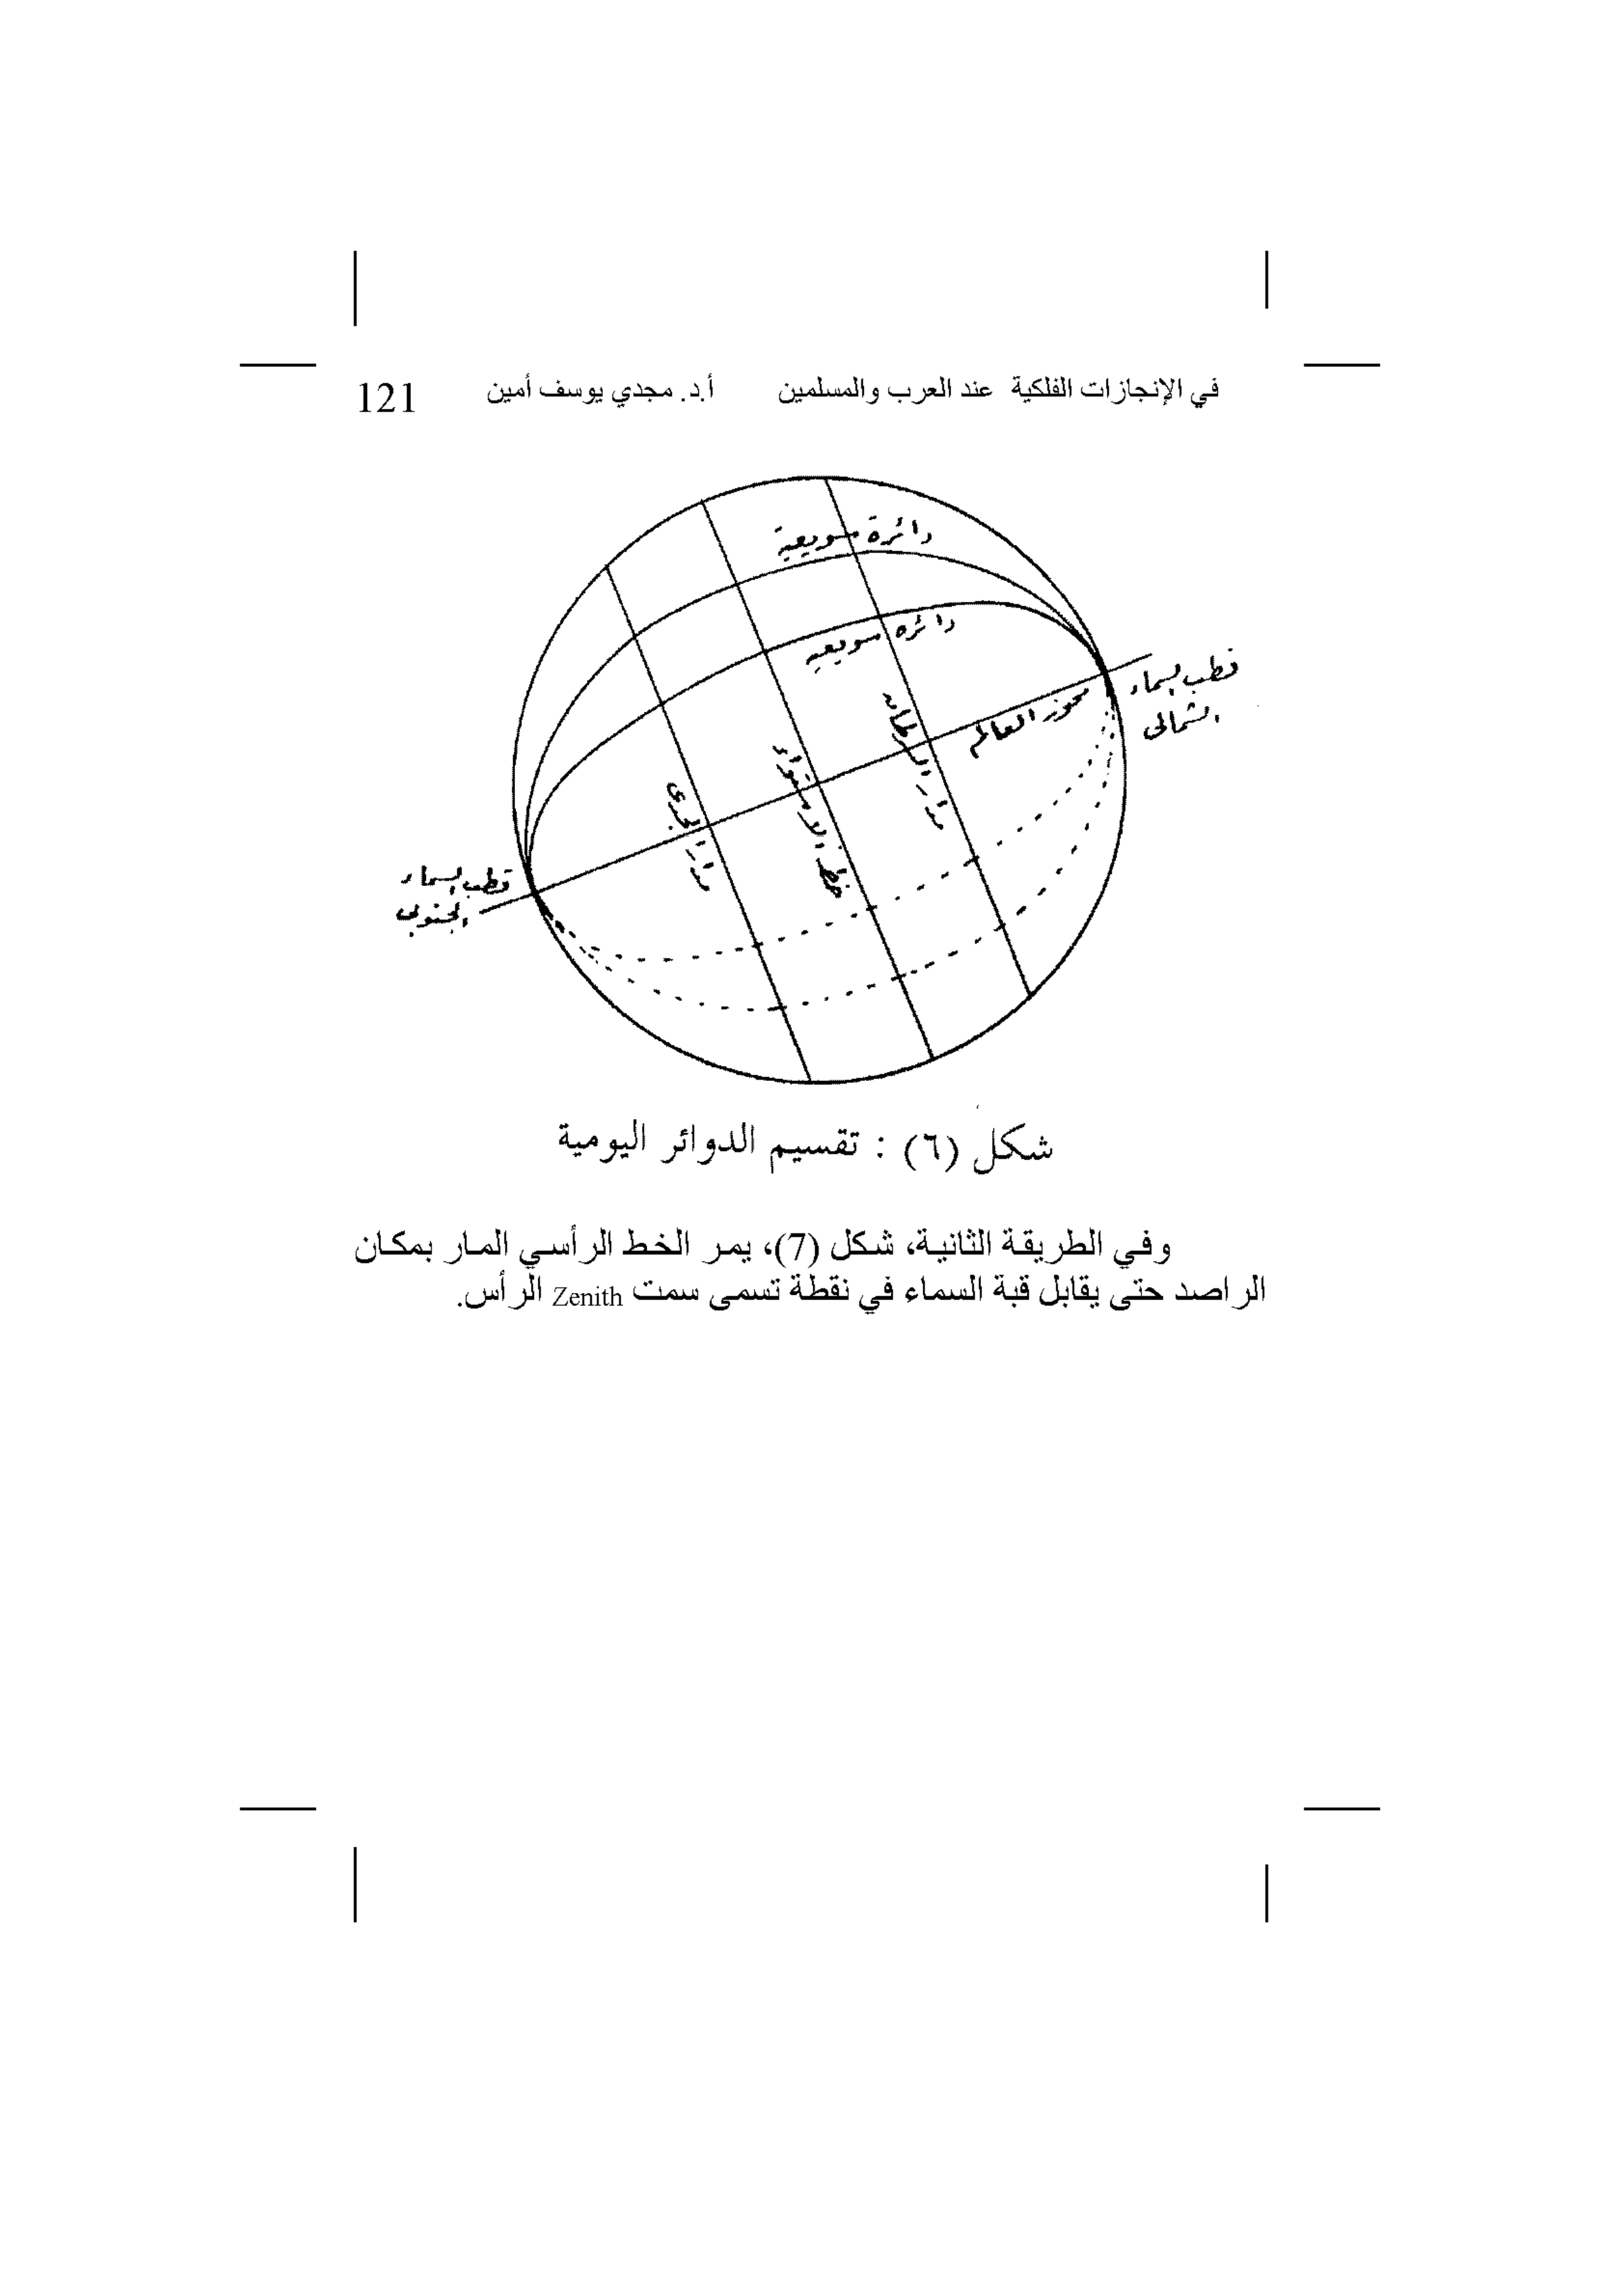 في الإنجازات الفلكية عند العرب والمسلمين أ.د. مجدي يوسف أمين 121
دائرة سويعية
دائره سويعيه
قطب السماء
الشمالى
محور العالم
مدار السرطان
خط الاستواء
مدار الجدى
قطب السماء
الجنوبى
شكل (٦) : تقسيم الدوائر اليومية
وفي الطريقة الثانية، شكل (7)، يمر الخط الرأسي المار بمكان
الراصد حتى يقابل قبة السماء في نقطة تسمى سمت Zenith الرأس.